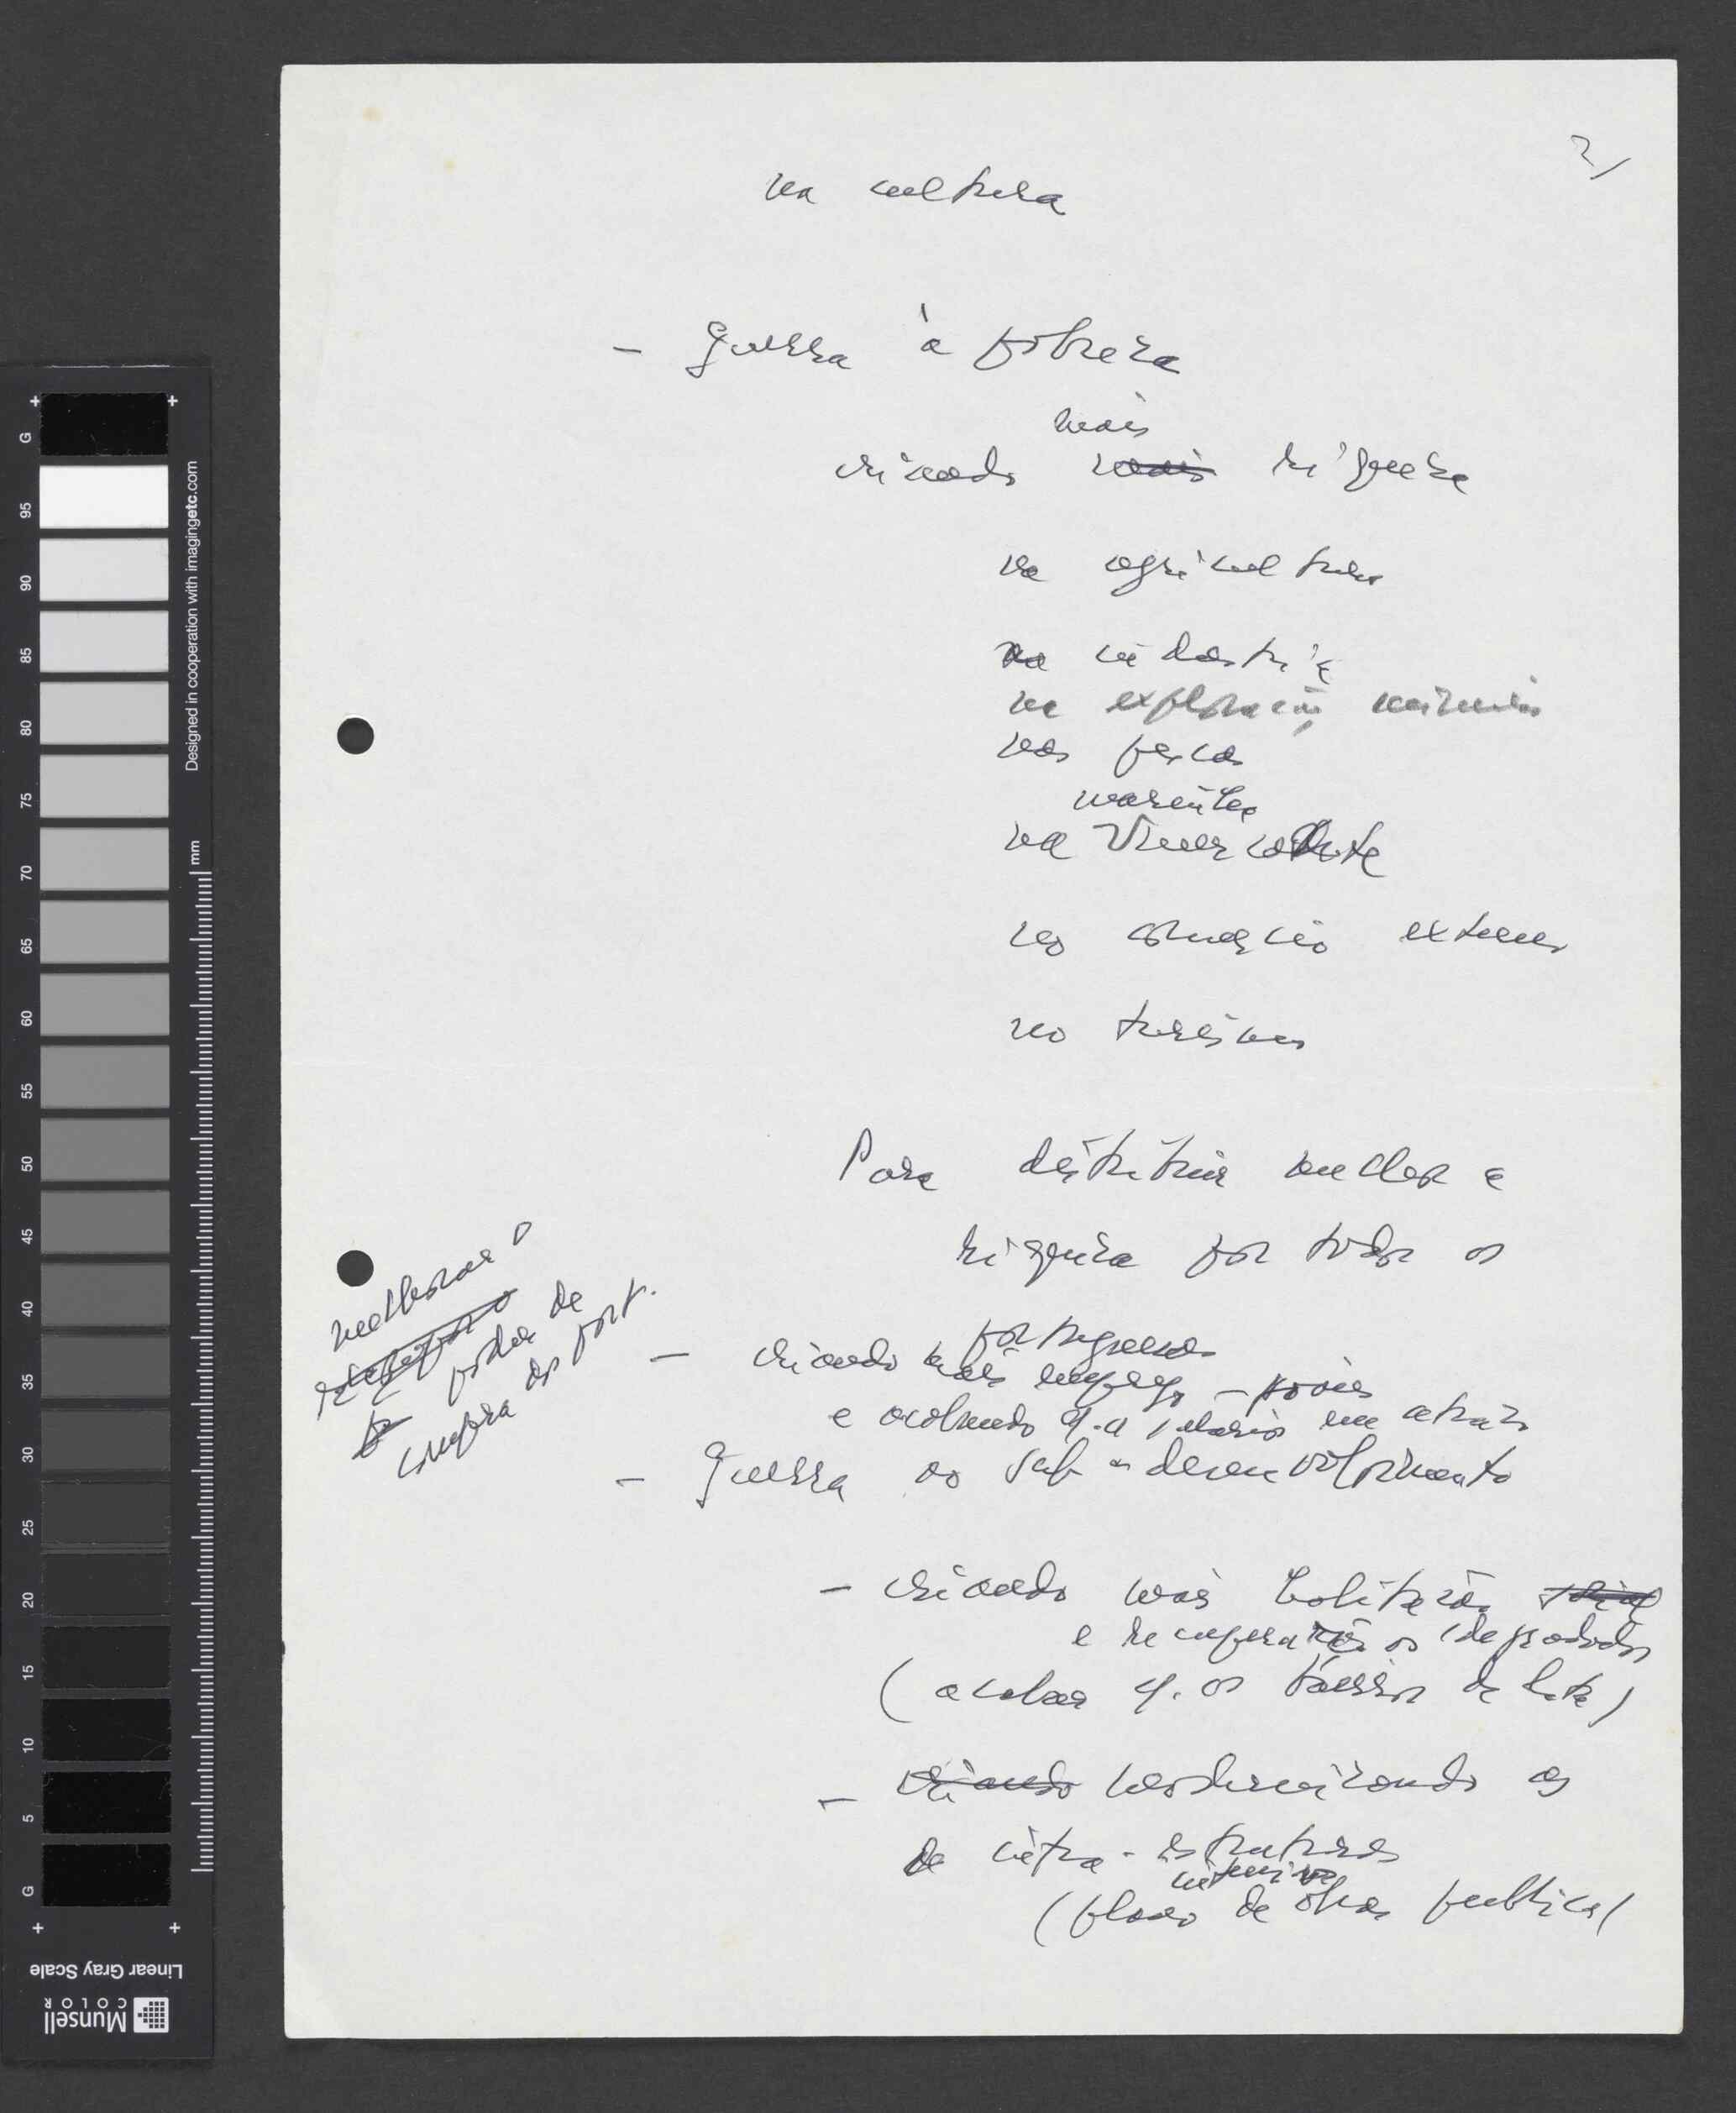 2/
na cultura
- guerra à pobreza
mais
criando mais riqueza
na agricultura
na indústria
na exploração mineira
nas pescas
na marinha mercante
no comércio externo
no turismo
Para distribuir melhor a
riqueza por todos os
portugueses
- criando mais emprego
e acabando q. a salários em atraso
- guerra ao sub-desenvolvimento
- criando mais habitação social
e recuperação os degradados
(acabar c. os bairros de lata)
- criando modernizando as
de infra-estruturas
intensivo
(plano de obras publicas)
melhorar o
poder de
compra dos port.
G 95 90 85 80 75 70 65 60 55 50 45 40 35 30 25 20 15 10 5 G
mm
Designed in cooperation with imagingetc.com
Linear Gray Scale
Munsell
COLOR